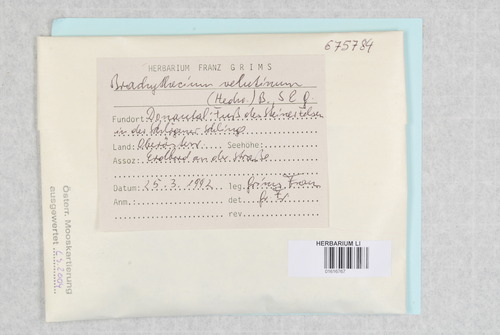 675784
HERBARIUM FRANZ GRIMS
Brachythecium velutinum
(Hedw.) B., S. & G.
Fundort: Donautal: Fuß der Steinerfelsen
in der Schlögener Schlinge
Land: Oberösterr. Seehöhe:
Assoz: Erdboden an der Straße
Datum: 25.3.1992 leg. Grims Franz
Anm.: det. Gr. Fr.
rev.
Österr. Mooskartierung
ausgewertet 6.5.2004
HERBARIUM LI